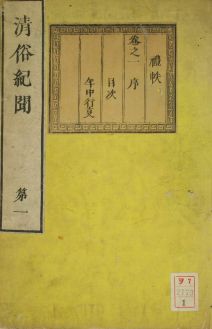 清俗紀聞 第一
禮帙
卷之一 序
目次
年中行叓
1